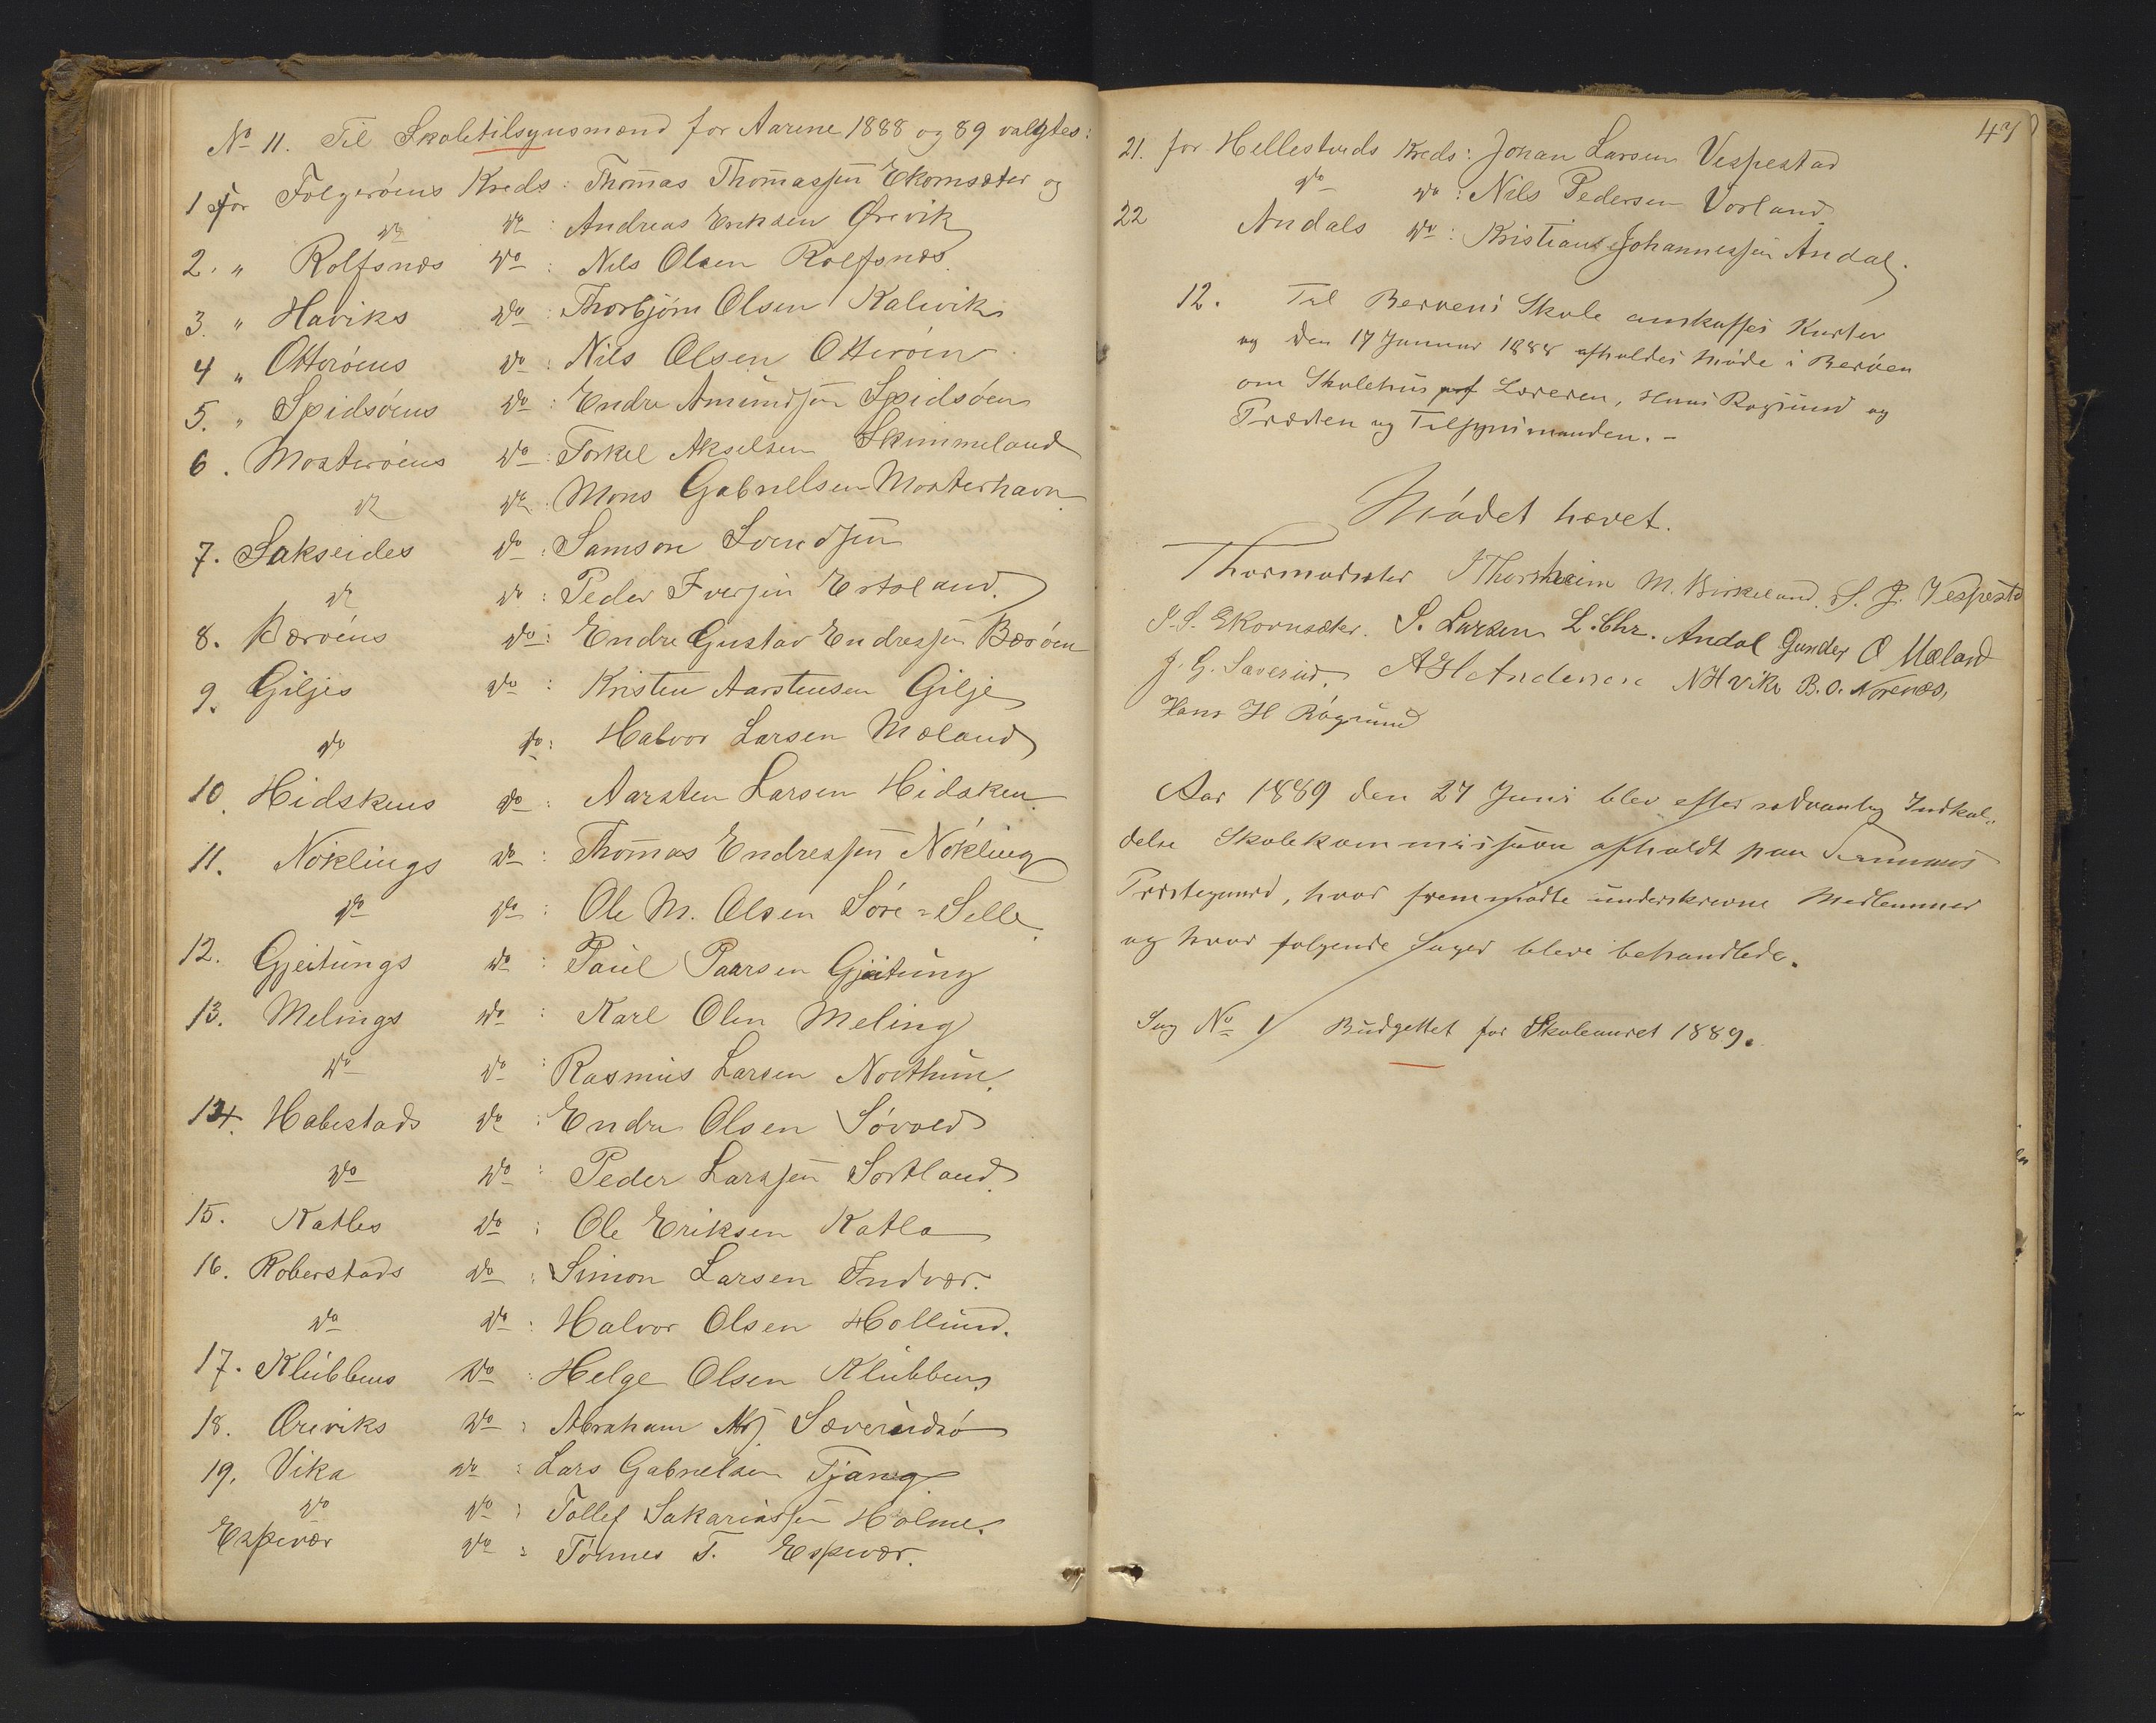 No 11. Til Skoletilsynsmænd for Aarene 1888 og 89 valgtes:
1 for Folgerøens Kreds: Thomas Thomassen Ekornsæter og
do do: Andreas Eriksen Ørevik
2. " Rolfsnæs do: Nils Olsen Rolfsnæs
3. " Haviks do: Thorbjørn Olsen Kalevik
4 " Otterøens do: Nils Olsen Otterøen
5. " Spidsøens do: Endre Amundsen Spidsøen
6. Mosterøens do: Torkel Akselsen Skimmeland
do do: Mons Gabrielsen Mosterhavn
7. Sakseides do: Samson Svendsen
do do: Peder Iversen Ertsland.
8. Bærøens do: Endre Gustav Endressen Bærøen
9. Giljes do: Kristen Aarstensen Gilje
do do: Halvor Larsen Mæland
10. Hidskens do: Aarsten Larsen Hidsken
11. Nøklings do: Thomas Endressen Nøkling
do do: Ole M. Olsen Søre-Selle
12. Gjeitungs do: Paul Paarsen Gjeitung
13. Melings do: Karl Olen Meling
do do: Rasmus Larsen Nortun.
14. Habestads do: Endre Olsen Søvold
do do: Peder Larssen Sortland.
15. Katles do: Ole Eriksen Katla
16. Roberstads do: Simon Larsen Indvær.
do do: Halvor Olsen Hollund.
17. Klubbens do: Helge Olsen Klubben
18. Øreviks do: Abraham Abr. Sæverudsø
19. Vika do: Lars Gabrielsen Tjang.
do do: Tollef Sakariassen Holme.
Espevær do: Tønnes T. Espevær.
47
21. for Hellestveds Kreds: Johan Larsen Vespestad
do do: Nils Pedersen Vorland
22 Andals do: Kristian Johannessen Andal.
12. Til Berøens Skole anskaffes Karter
og den 17 Januar 1888 afholdes Møde i Berøen
om Skolehus af Læreren, Hans Røgsund og
Præsten og Tilsynsmanden. -
Mødet hævet.
Thormodsæter J Thorsheim M. Birkeland. S. J. Vespestd
S. S. Ekornsæter. S. Larsen L. Chr. Andal Gunder O Mæland
J. G. Saverud. A H Andersen N H Vika B. O. Norenæs,
Hans H Røgsund
Aar 1889 den 27 Juni blev efter sædvanlig Indkal-
delse Skolekommissionen afholdt paa Finnaas
Præstegaard, hvor fremmødte underskrevne Medlemmer
og hvor følgende Sager bleve behandlede.
Sag No 1 Budgettet for Skoleaaret 1889.